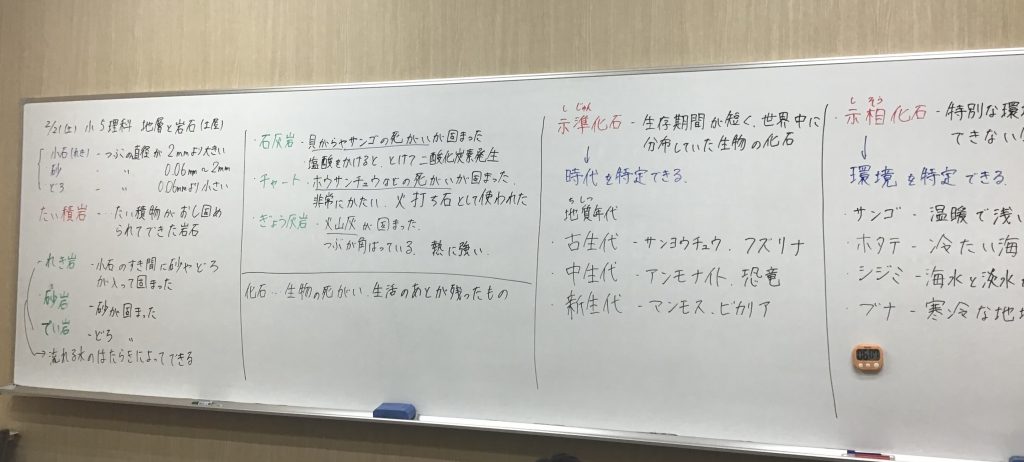 2/21(土) 小5理科 地層と岩石(土屋)
小石(れき) - つぶの直径が 2mmより大きい
砂 - 〃 0.06mm~2mm
どろ - 〃 0.06mmより小さい
たい積岩 - たい積物がおし固め
られてできた岩石
・れき岩 - 小石のすき間に砂やどろ
が入って固まった
・砂岩 - 砂が固まった
・でい岩 - どろ 〃
→流れる水のはたらきによってできる
・石灰岩 - 貝がらやサンゴの死がいが固まった
塩酸をかけると、とけて二酸化炭素発生
・チャート - ホウサンチュウなどの死がいが固まった.
非常にかたい. 火打ち石として使われた
・ぎょう灰岩 - 火山灰が固まった.
つぶが角ばっている. 熱に強い.
化石 - 生物の死がい、生活のあとが残ったもの
し じゅん
示準化石 - 生存期間が短く、世界中に
分布していた生物の化石
↓
時代を特定できる.
ちしつ
地質年代
・古生代 - サンヨウチュウ、フズリナ
・中生代 - アンモナイト、恐竜
・新生代 - マンモス、ビカリア
し そう
・示相化石 - 特別な環
できない
↓
環境を特定できる.
・サンゴ - 温暖で浅い
・ホタテ - 冷たい海
・シジミ - 海水と淡水
・ブナ - 寒冷な地